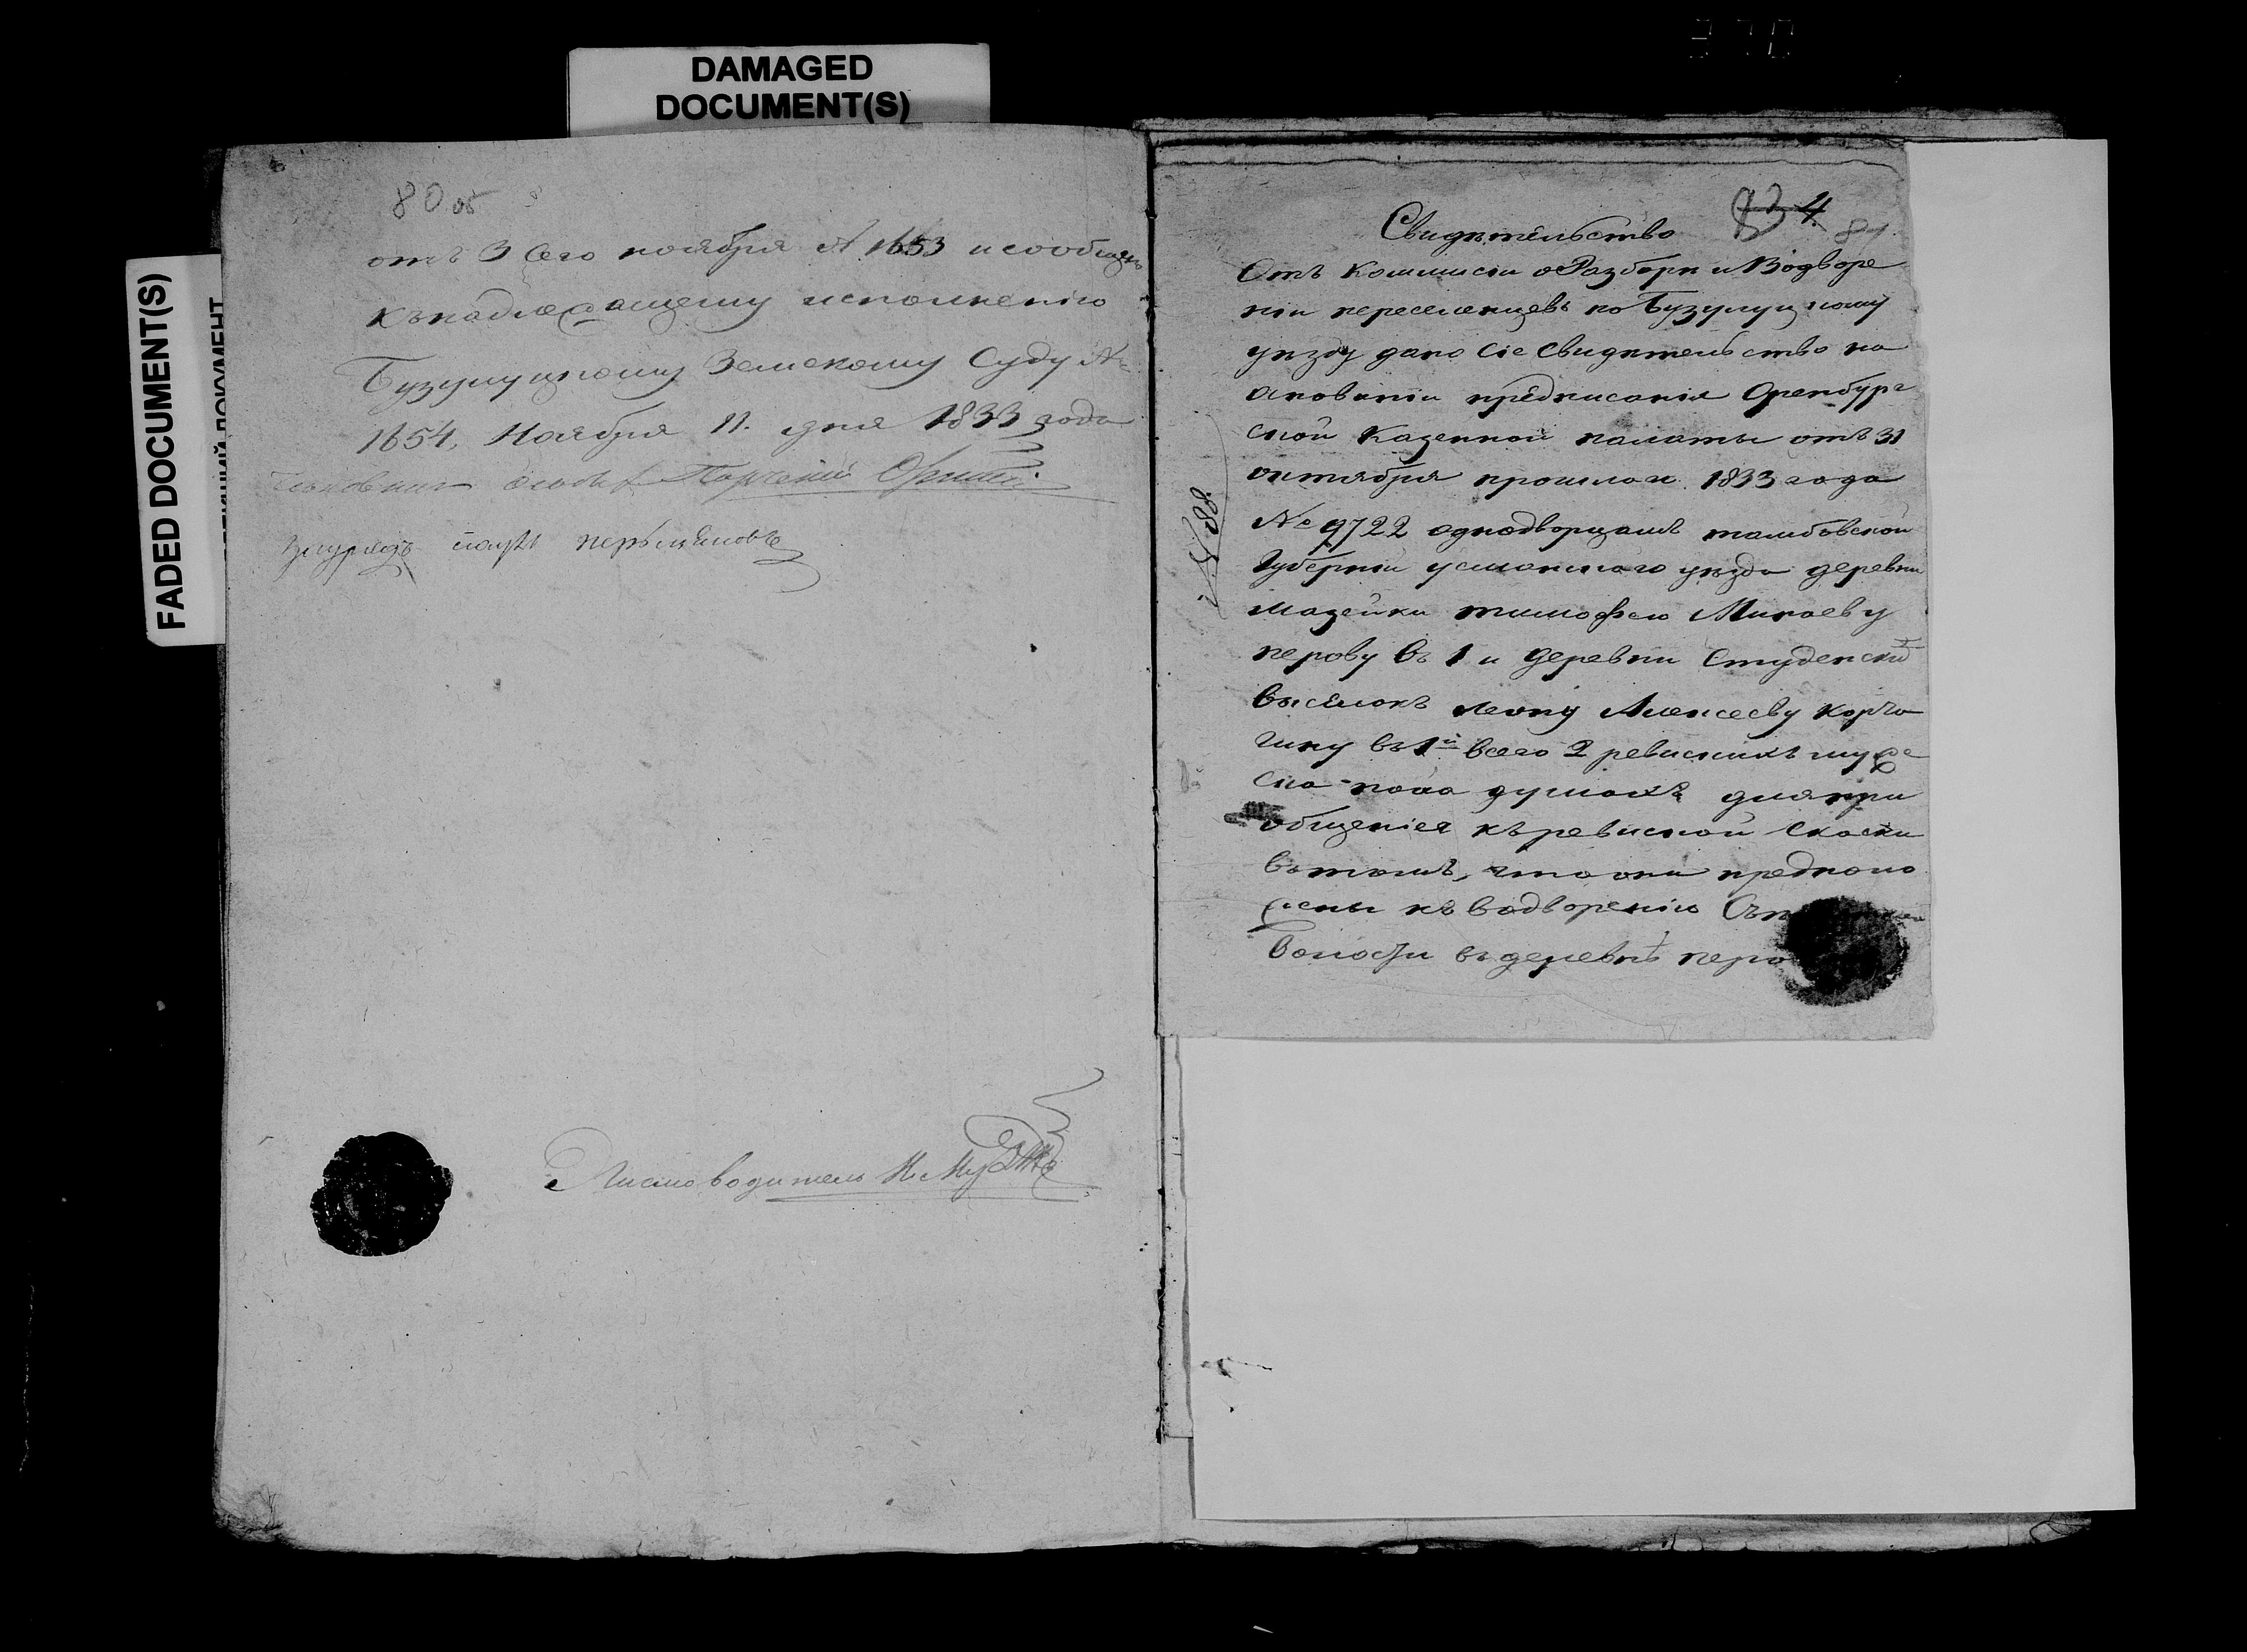 DAMAGED
DOCUMENT(S)
FADED DOCUMENT(S)
80 об
отъ 3 Сего ноября № 1653 и сообщено
къ надлежащему исполнению
Бузулуцкому Земскому Суду №
1654, Ноября 11. дня 1833 года
Письмоводитель
834
81
Свидѣтельство
Отъ Коммисіи о Разборѣ и Водворе
ніи переселенцевъ по Бузулуцкому
уѣзду дано сіе Свидѣтельство на
основаніи предписанія Оренбург
ской Казенной палаты отъ 31
октября прошлаго 1833 года
№ 9722 однодворцамъ тамбовской
Губерніи усманскаго уѣзда деревни
Мазейки тимофею Минаеву
перову въ 1 и деревни Студенски
выселокъ Леону Алексееву Корча
гину въ 1й всего 2 ревискихъ муже
ска пола душахъ для при
общенія къ ревиской скаски
въ томъ, что они предполо
жены къ водворению
Волости въ деревнѣ перо
№ 88